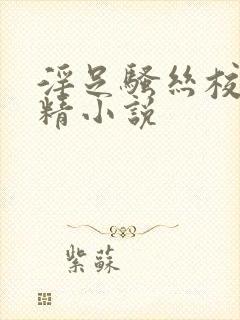 淫足騷絲校
精小說
紫蘇